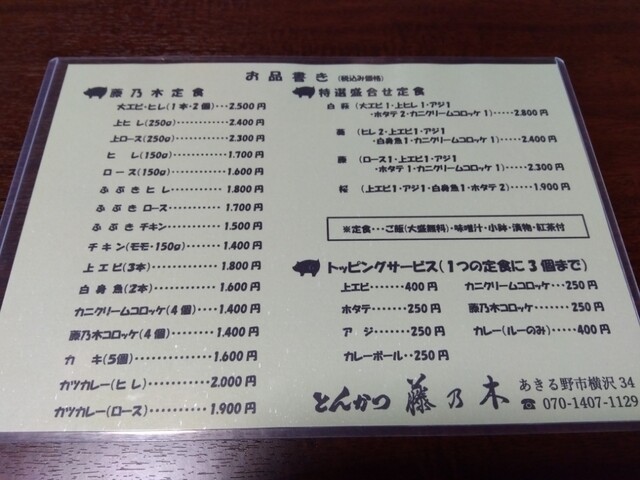 お品書き (税込み価格)
藤乃木定食
大エビ・ヒレ(1本・2個)・・・2.500円
上ヒレ(250g)・・・・・・・・・2.400円
上ロース(250g)・・・・・・・・2.300円
ヒレ(150g)・・・・・・・・・・1.700円
ロース(150g)・・・・・・・・・1.600円
ふぶきヒレ・・・・・・・・・・1.800円
ふぶきロース・・・・・・・・・1.700円
ふぶきチキン・・・・・・・・・1.500円
チキン(モモ・150g)・・・・・・1.400円
上エビ(3本)・・・・・・・・・・1.800円
白身魚(2本)・・・・・・・・・・1.600円
カニクリームコロッケ(4個)・・・・1.400円
藤乃木コロッケ(4個)・・・・・・1.400円
カキ(5個)・・・・・・・・・・・1.600円
カツカレー(ヒレ)・・・・・・・・2.000円
カツカレー(ロース)・・・・・・・1.900円
特選盛合せ定食
(大エビ1・上ヒレ1・アジ1
・ホタテ2・カニクリームコロッケ1)・・・・・2.800円
(ヒレ2・上エビ1・アジ1
・白身魚1・カニクリームコロッケ1)・・・・2.400円
藤 (ロース1・上エビ1・アジ1
・ホタテ1・カニクリームコロッケ1)・・・・2.300円
桜 (上エビ1・アジ1・白身魚1・ホタテ2)・・・・1.900円
※定食・・・ご飯(大盛無料)・味噌汁・小鉢・漬物・紅茶付
トッピングサービス(1つの定食に3個まで)
上エビ・・・・・・400円 カニクリームコロッケ・・・250円
ホタテ・・・・・・250円 藤乃木コロッケ・・・・・250円
アジ・・・・・・・250円 カレー(ルーのみ)・・・・400円
カレーボール・・・・250円
とんかつ 藤乃木
あきる野市横沢34
☎070-1407-1129